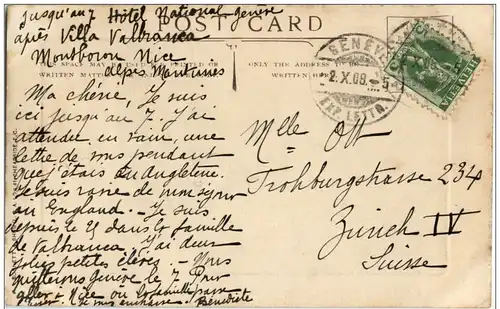 jusqu'au 7 Hôtel National Genève
après Villa Valbranca
Montboron Nice
Alpes Maritimes
POST CARD
SPACE MAY BE USED
WRITTEN MATTER
ONLY THE ADDRESS
WRITTEN HERE
GENÈVE
2.X.08.-5
EXP. LETTR.
HELVETIA
Ma chérie, Je suis
ici jusqu'au 7. J'ai
attendu en vain, une
lettre de vous pendant
que j'étais en Angleterre.
Je suis ravie de mon séjour
au England. - Je suis
depuis le 29 dans la famille
de Valbranca. J'ai deux
jolies petites élèves. - Nous
quitterons Genève le 7 Pour
aller à Nice où la famille passe
l'hiver. Je vous embrasse. Bénédicte
Mlle Ott
Frohburgstrasse 234
Zürich IV
Suisse